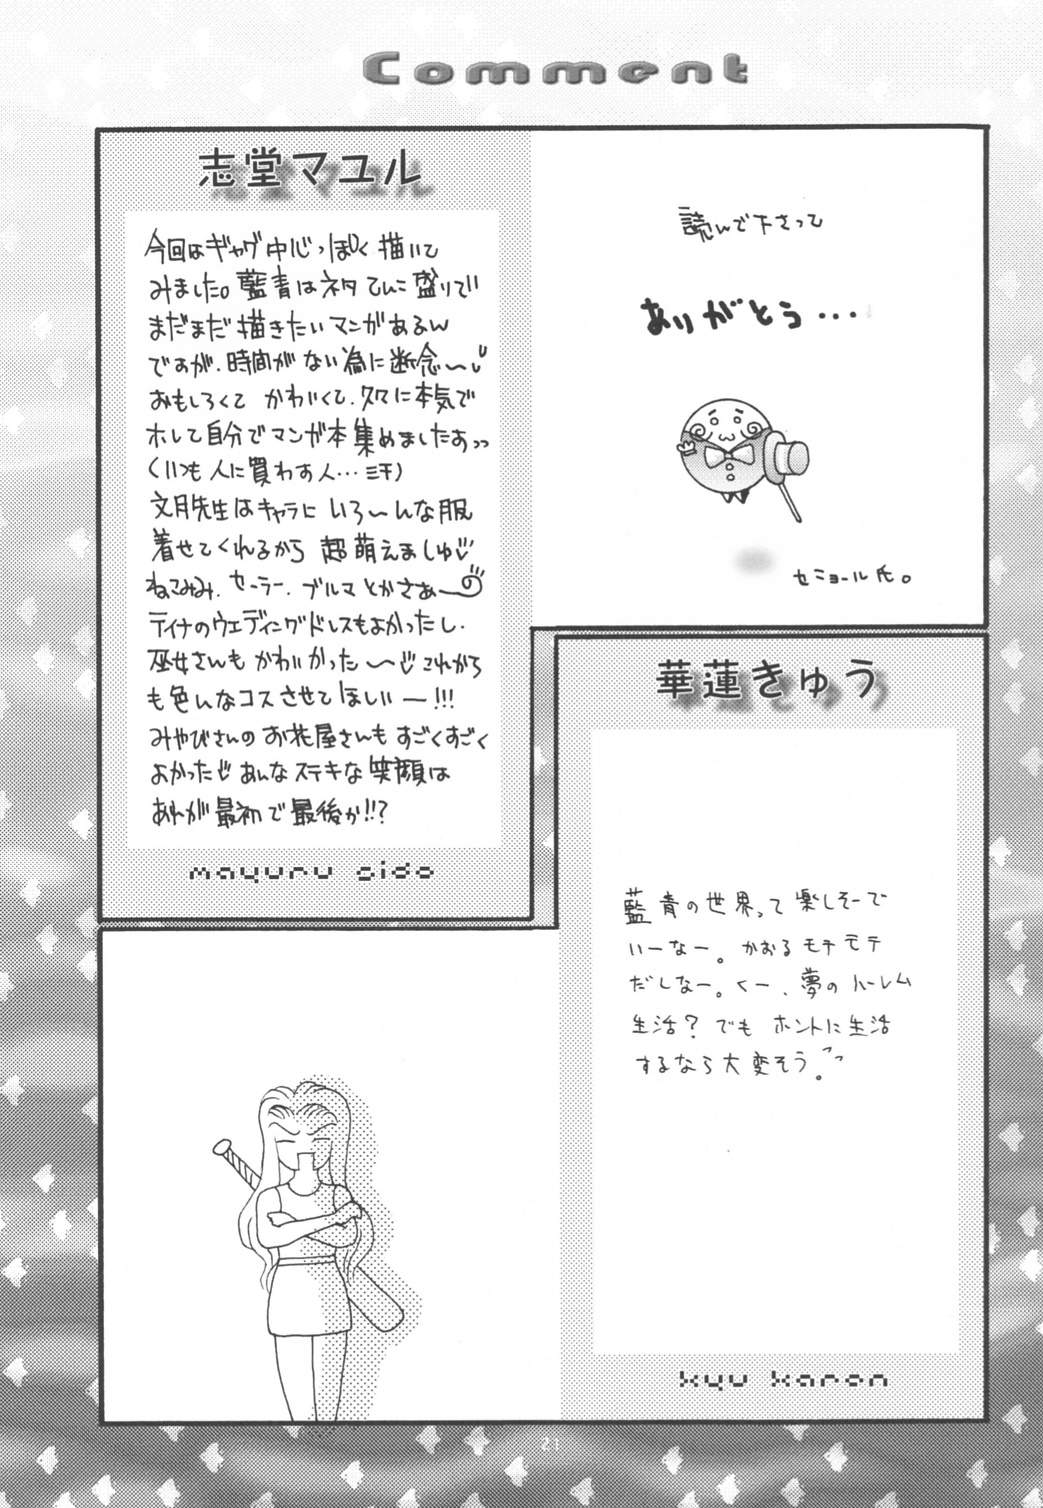 Comment
志堂マユル
今回はギャグ中心っぽく描いて
みました。藍青はネタてんこ盛りでい
まだまだ描きたいマンガがあるん
ですが、時間がない為に断念〜
おもしろくて かわいくて、久々に本気で
ホレて自分でマンガ本集めましたあっっ
(いつも人に買わす人…
文月先生はキャラに いろ〜んな服
着せてくれるから 超萌えましゅ
ねこみみ、セーラー、ブルマとかさぁ〜
ティナのウェディングドレスもよかったし、
巫女さんも かわいかった〜 これから
も色んなコスさせてほしいー!!!
みやびさんの お花屋さんも すごくすごく
よかった あんなステキな笑顔は
あれが最初で最後か!!?
mayuru sido
読んで下さって
ありがとう・・・
セニョール氏。
華蓮きゅう
藍青の世界って楽しそーで
いーなー。かおるモテモテ
だしなー。くー、夢のハーレム
生活? でも ホントに生活
するなら大変そう。
kyu karen
21